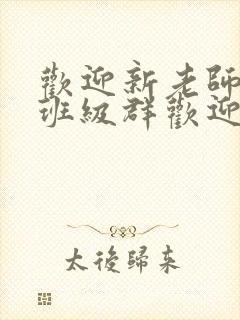 歡迎新老師
班級群歡迎
太後歸來